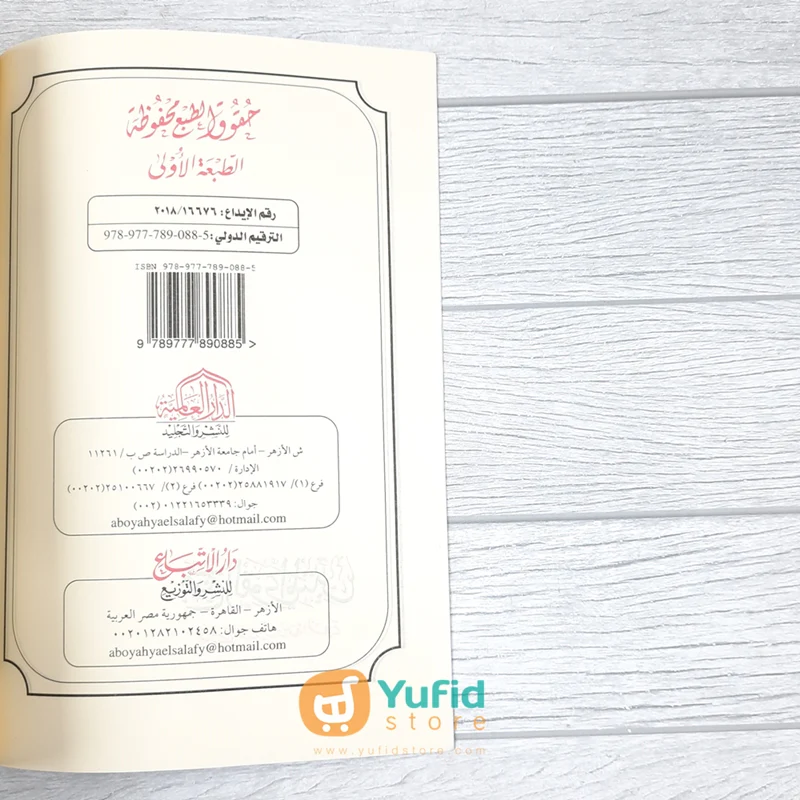 حقوق الطبع محفوظة
الطَّبْعَة الأُولى
رقم الإيداع: ٢٠١٨/١٦٦٧٦
الترقيم الدولي: 978-977-789-088-5
ISBN 978-977-789-088-5
9 789777 890885 >
الدار العالمية
للنشر والتجليد
ش الأزهر – أمام جامعة الأزهر – الدراسة ص ب / ١١٢٦١
الإدارة / ٢٦٩٩٠٥٧٠ (٠٠٢٠٢)
فرع (١)/ ٢٥٨٨١٩١٧ (٠٠٢٠٢) فرع (٢)/ ٢٥١٠٠٦٦٧ (٠٠٢٠٢)
جوال: ٠١٢٢١٦٥٣٣٣٩ (٠٠٢)
aboyahyaelsalafy@hotmail.com
دار الاتباع
للنشر والتوزيع
الأزهر – القاهرة – جمهورية مصر العربية
هاتف جوال: ٠٠٢٠١٢٨٢١٠٢٤٥٨
aboyahyaelsalafy@hotmail.com
Yufid
store
www.yufidstore.com